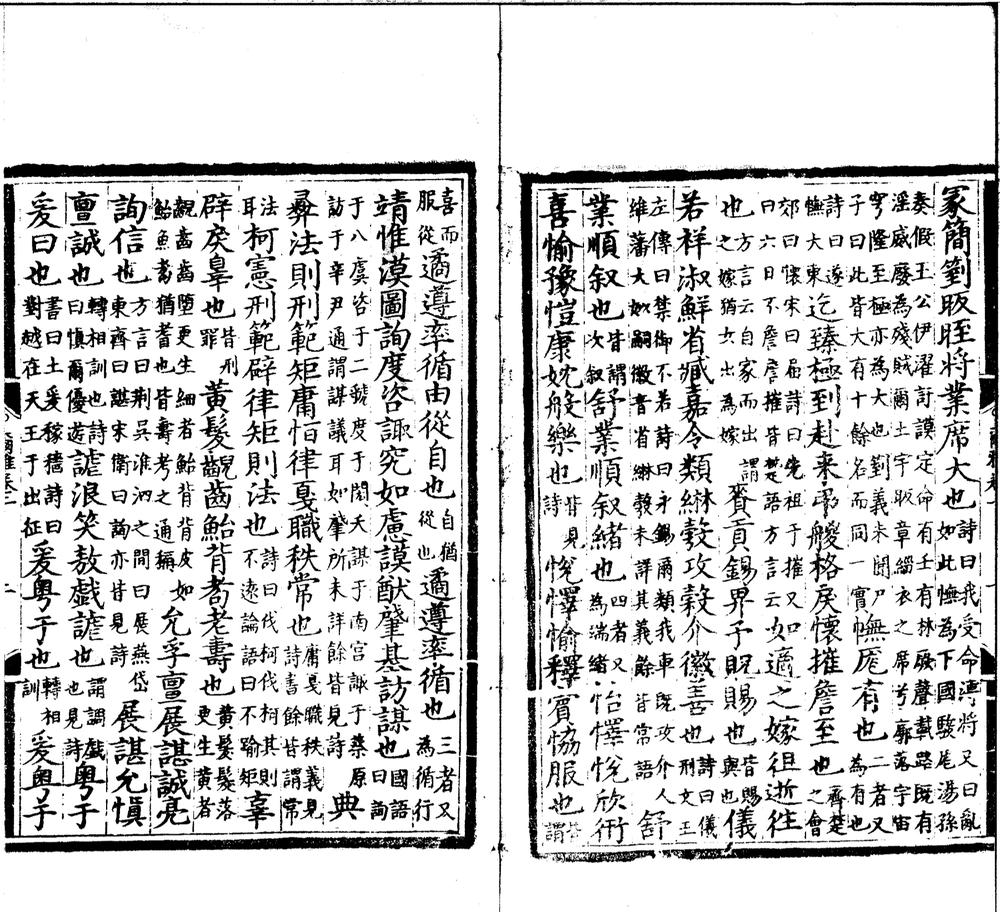 冢簡箌昄晊將業席大也詩曰我受命溥將又曰亂如此憮為下國駿厖湯孫
奏假王公伊濯訏謨定命有壬有林厥聲載路既有淫威廢為殘賊爾土宇昄章緇衣之席兮廓落宇宙
穹隆至極亦為大也箌義未聞尸子曰此皆大有十餘名而同一實幠厖有也二者又為有也
詩曰遂幠大東迄臻極到赴來弔艐格戾懷摧詹至也齊楚之會
郊曰懷宋曰屆詩曰先祖于摧又曰六日不詹詹摧皆楚語方言云如適之嫁徂逝往
也方言云自家而出謂之嫁猶女出為嫁賚貢錫畀予貺賜也皆賜與也儀
若祥淑鮮省臧嘉令類綝彀攻穀介徽善也詩曰儀刑文王
左傳曰禁御不若詩曰永錫爾類我車既攻介人維藩大姒嗣徽音省綝彀未詳其義餘皆常語舒
業順叙也皆謂次叙舒業順叙緒也四者又為端緒怡懌悅欣衎
喜愉豫愷康妉般樂也皆見詩悅懌愉釋賓協服也皆謂
喜而服從遹遵率循由從自也自猶從也遹遵率循也三者又為循行
靖惟漠圖詢度咨諏究如慮謨猷肇基訪謀也國語曰詢
于八虞咨于二虢度于閎夭謀于南宮諏于蔡原訪于辛尹通謂謀議耳如肇所未詳餘皆見詩典
彝法則刑範矩庸恒律戛職秩常也庸戛職秩義見詩書餘皆謂常
法耳柯憲刑範辟律矩則法也詩曰伐柯伐柯其則不遠論語曰不踰矩辜
辟戾辠也皆刑罪黃髮齯齒鮐背耇老壽也黃髮髮落更生黃者
齯齒齒墮更生細者鮐背背皮如鮐魚耇猶耆也皆壽考之通稱允孚亶展諶誠亮
詢信也方言曰荊吳淮汭之間曰展燕岱東齊曰諶宋衛曰詢亦皆見詩展諶允慎
亶誠也轉相訓也詩曰慎爾優遊謔浪笑敖戲謔也謂調戲也見詩粵于
爰曰也書曰土爰稼穡詩曰對越在天王于出征爰粵于也轉相訓爰粵于